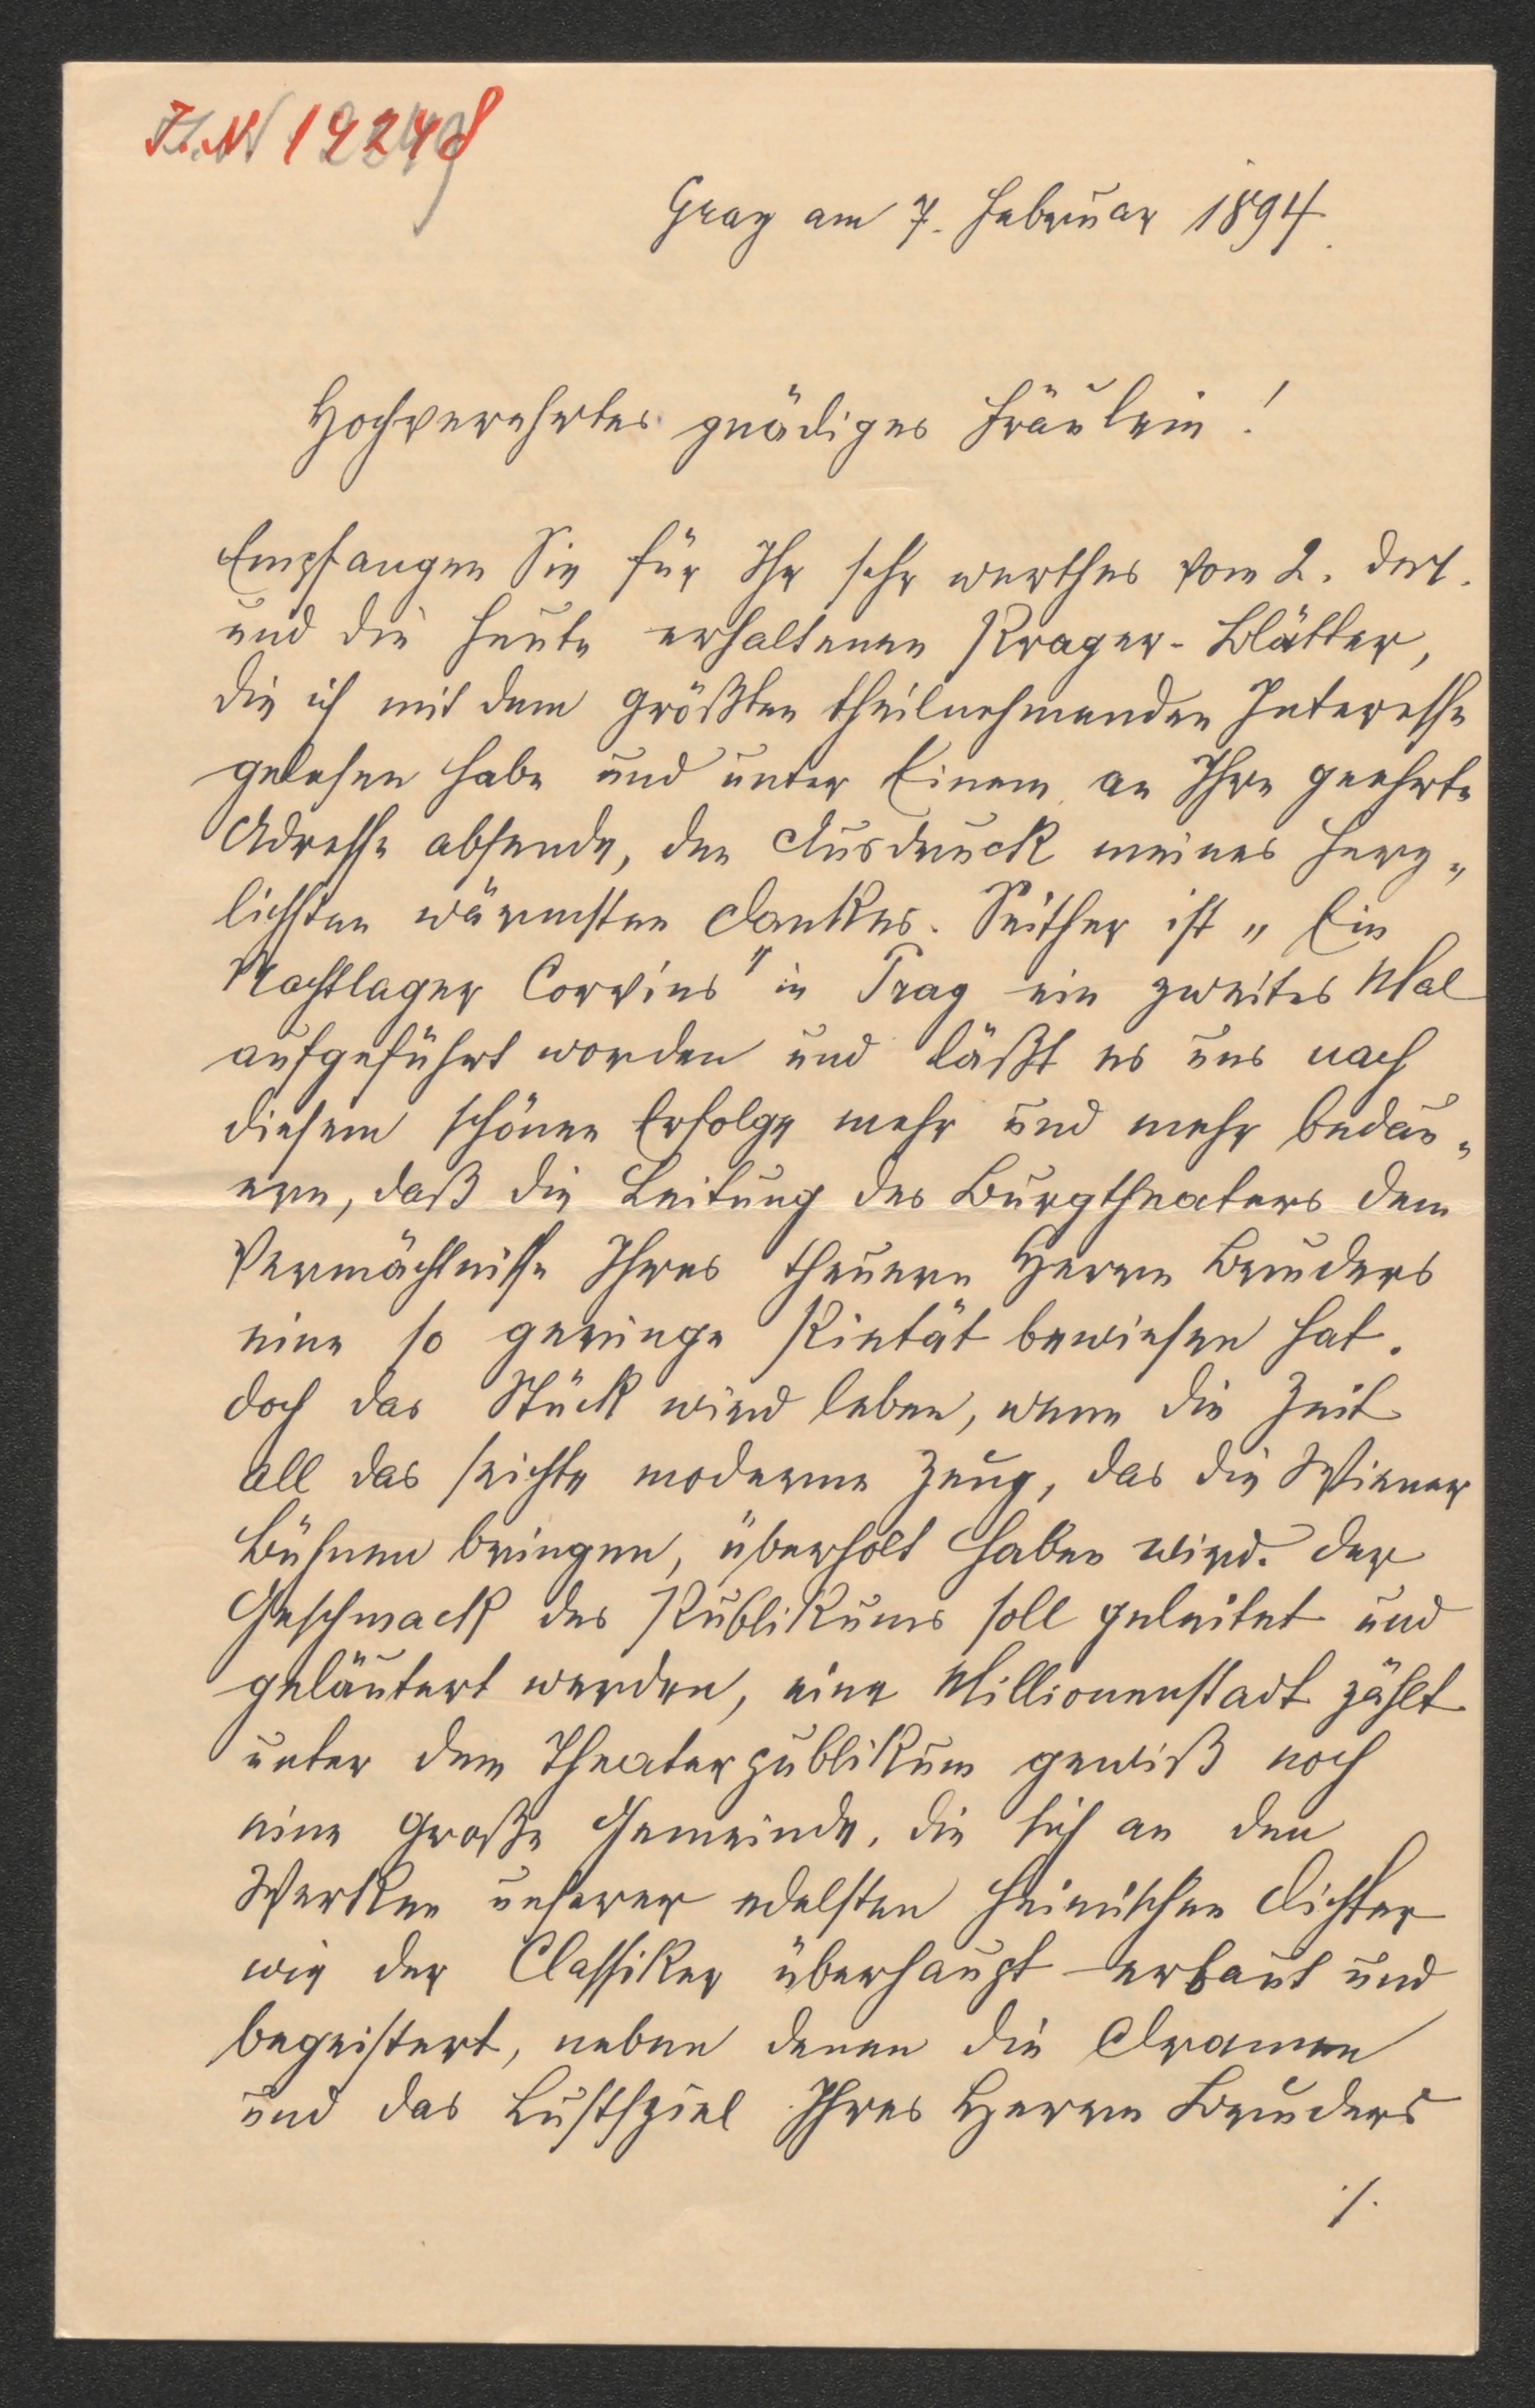 I.N 19248
Graz am 7. Februar 1894.
Hochverehrtes gnädiges Fräulein!
Empfangen Sie für Ihr sehr werthes vom 2. dss.
und die heute erhaltenen Prager-Blätter,
die ich mit dem größten theilnehmenden Interesse
gelesen habe und unter Einem an Ihre geehrte
Adresse absende, den Ausdruck meines herz„
lichsten wärmsten Dankes. Seither ist „Ein
Nachtlager Corvins" in Prag ein zweites Mal
aufgeführt worden und läßt es uns nach
diesem schönen Erfolge mehr und mehr bedau„
ern, daß die Leitung des Burgtheaters dem
Vermächtnisse Ihres theuern Herrn Bruders
eine so geringe Pietät bewiesen hat.
Doch das Stück wird leben, wenn die Zeit
all das seichte moderne Zeug, das die Wiener
Bühnen bringen, überholt haben wird. Der
Geschmack des Publikums soll geleitet und
geläutert werden, eine Millionenstadt zählt
unter dem Theaterpublikum gewiß noch
eine große Gemeinde, die sich an den
Werken unserer edelsten heimischen Dichter
wie der Classiker überhaupt erbaut und
begeistert, neben denen die Dramen
und das Lustspiel Ihres Herrn Bruders
./.